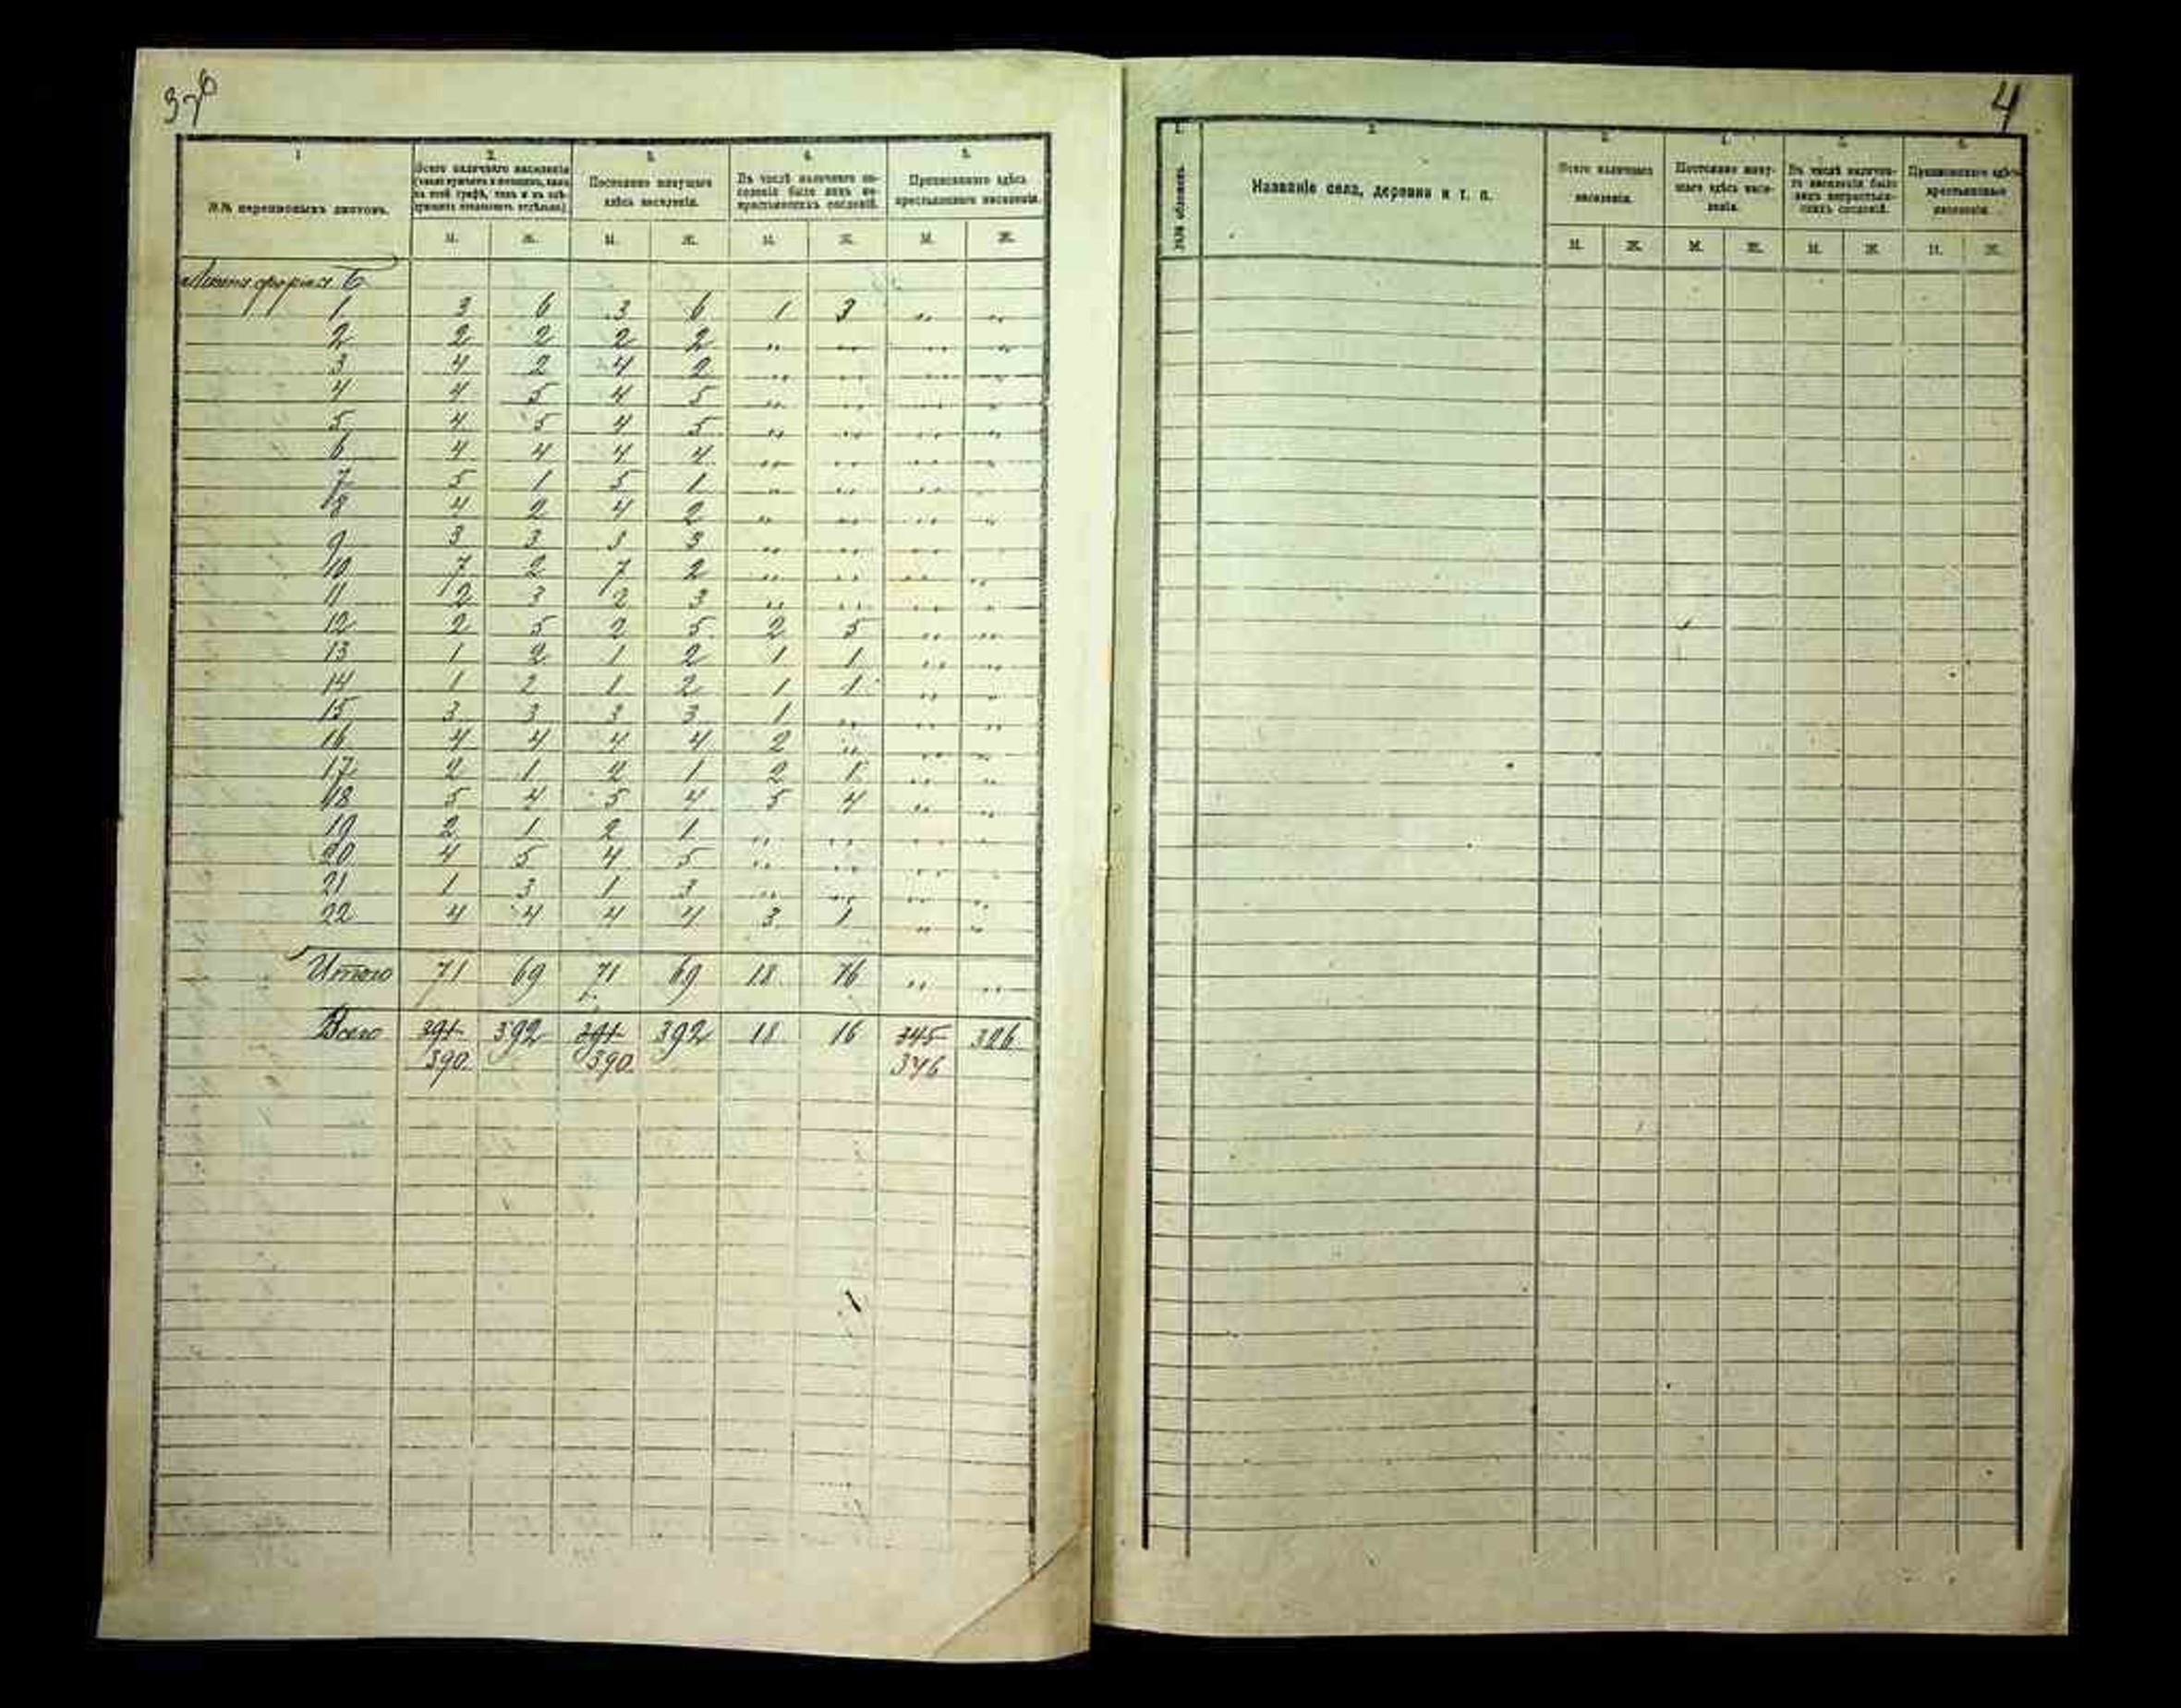 376
1
2.
3.
4.
5.
№№ переписныхъ листовъ.
Всего наличнаго населенія
Постоянно живущаго здѣсь населенія.
Въ числѣ наличнаго населенія было лицъ некрестьянскихъ сословій.
Приписаннаго здѣсь крестьянскаго населенія.
М. Ж. М. Ж. М. Ж. М. Ж.
форма Б
1 3 6 3 6 1 3 „ „
2 2 2 2 2 „ „ „ „
3 4 2 4 2 „ „ „ „
4 4 5 4 5 „ „ „ „
5 4 5 4 5 „ „ „ „
6 4 4 4 4 „ „ „ „
7 5 1 5 1 „ „ „ „
8 4 2 4 2 „ „ „ „
9 3 3 3 3 „ „ „ „
10 7 2 7 2 „ „ „ „
11 2 3 2 3 „ „ „ „
12 2 5 2 5 2 5 „ „
13 1 2 1 2 1 1 „ „
14 1 2 1 2 1 1 „ „
15 3 3 3 3 1 „ „ „
16 4 4 4 4 2 „ „ „
17 2 1 2 1 2 1 „ „
18 5 4 5 4 5 4 „ „
19 2 1 2 1 „ „ „ „
20 4 5 4 5 „ „ „ „
21 1 3 1 3 „ „ „ „
22 4 4 4 4 3 1 „ „
Итого 71 69 71 69 18 16 „ „
Всего 391 392 391 392 18 16 345 326
390 390 346
4
1. 2. 3. 4. 5. 6.
Названіе села, деревни и т. п.
Всего наличнаго населенія.
Постоянно живущаго здѣсь населенія.
Въ числѣ наличнаго населенія было лицъ некрестьянскихъ сословій.
Приписаннаго здѣсь крестьянскаго населенія.
М. Ж. М. Ж. М. Ж. М. Ж.